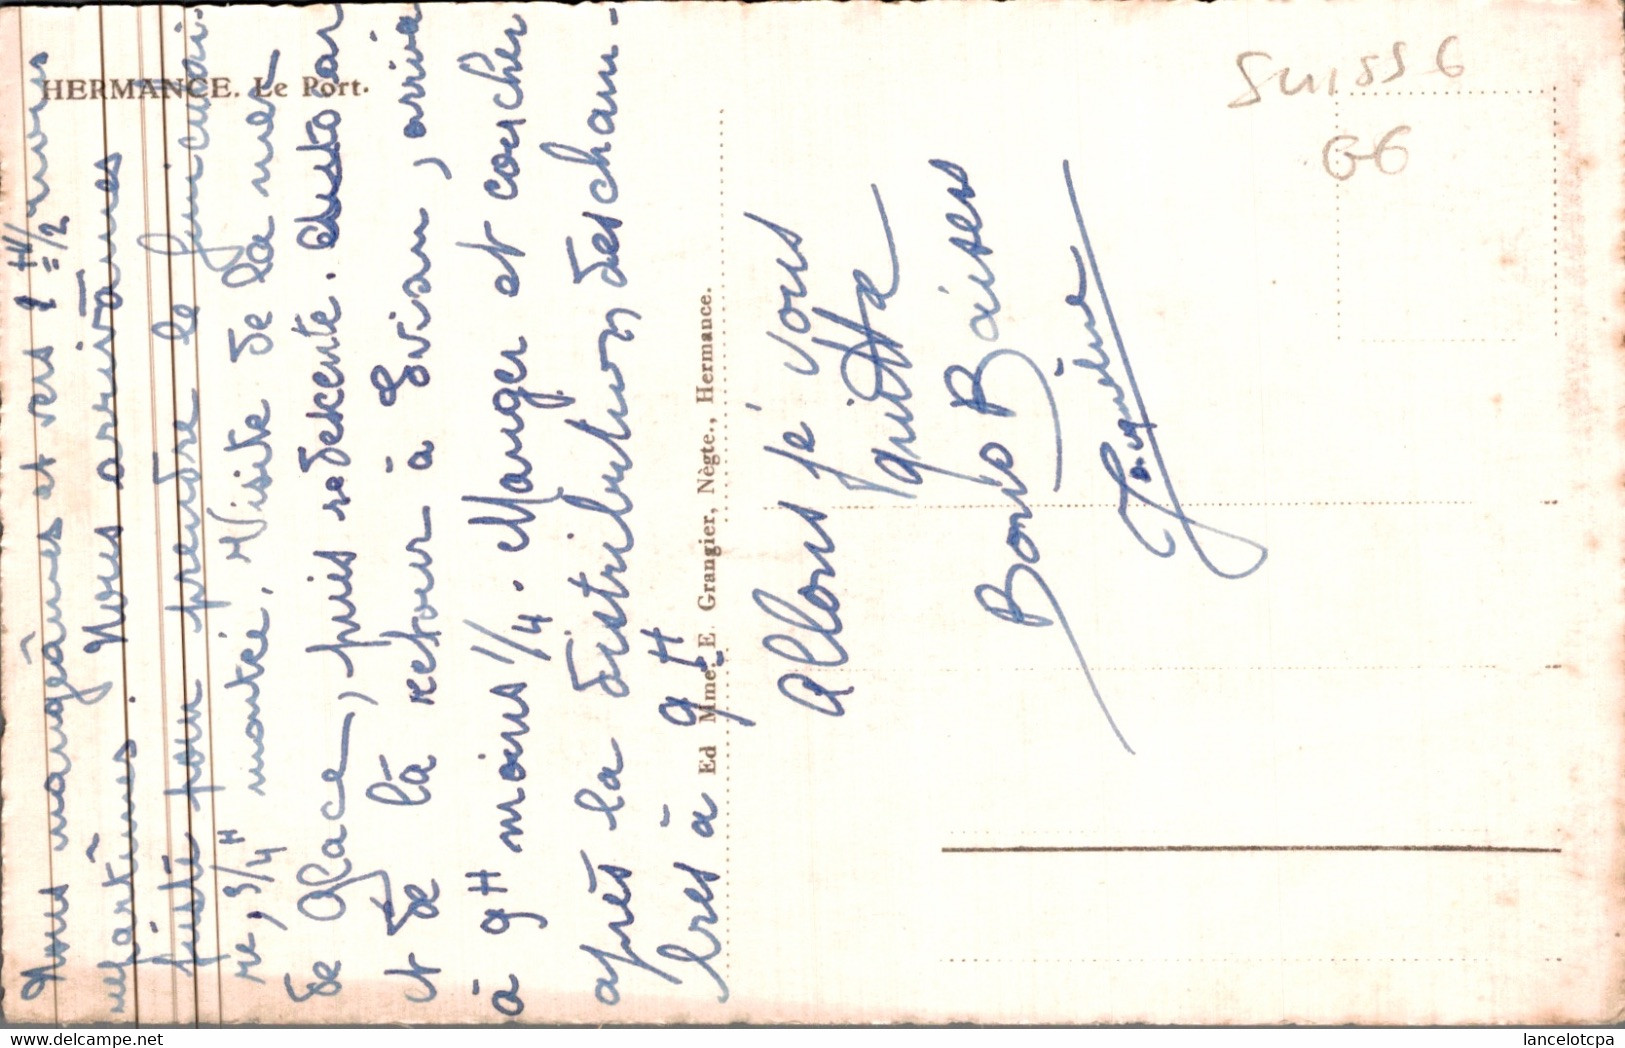 HERMANCE. Le Port.
Nous mangeâmes et vers 1H 1/2 nous
repartîmes. Nous arrivâmes
juste pour prendre le funiculai-
re, 3/4H montée, Visite de la mer
de Glace, puis redescente. Auto car
et de là retour à Evian, arrivée
à 9H moins 1/4. Manger et coucher
après la distribution des cham-
bres à 9H
Ed Mme E. Grangier, Négte., Hermance.
Allons je vous
quitte
Bons Baisers
Jacqueline
SUISSE
G6
lancelotcpa